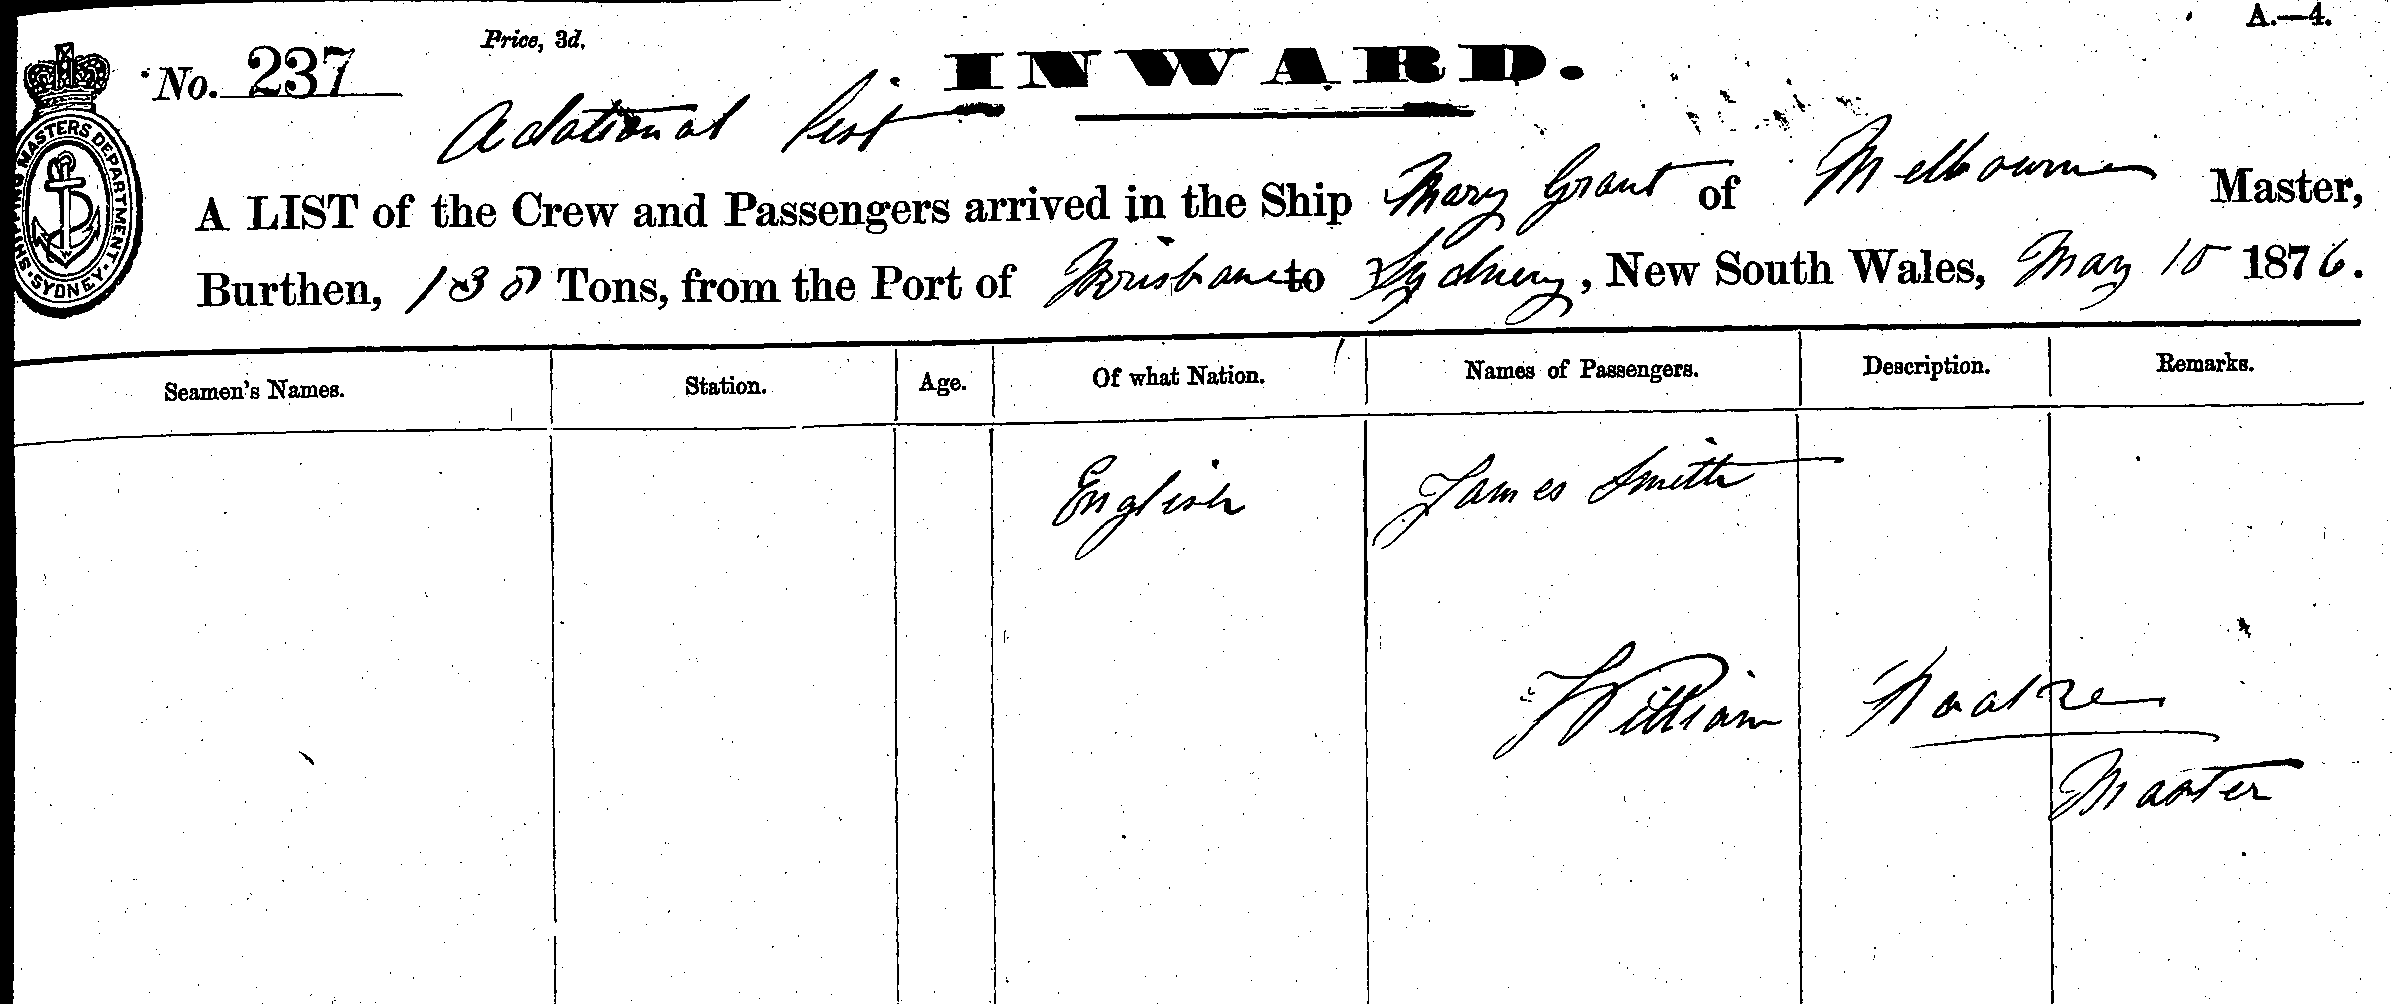 A.—4.
Price, 3d.
No. 237
INWARD.
Adational list
A LIST of the Crew and Passengers arrived in the Ship Mary Grant of Melbourne Master,
Burthen, Tons, from the Port of Brisbane to Sydney, New South Wales, May 10 1876.
SHIPPING MASTERS DEPARTMENT. SYDNEY
Seamen's Names. Station. Age. Of what Nation. Names of Passengers. Description. Remarks.
English James Smith
William
Master